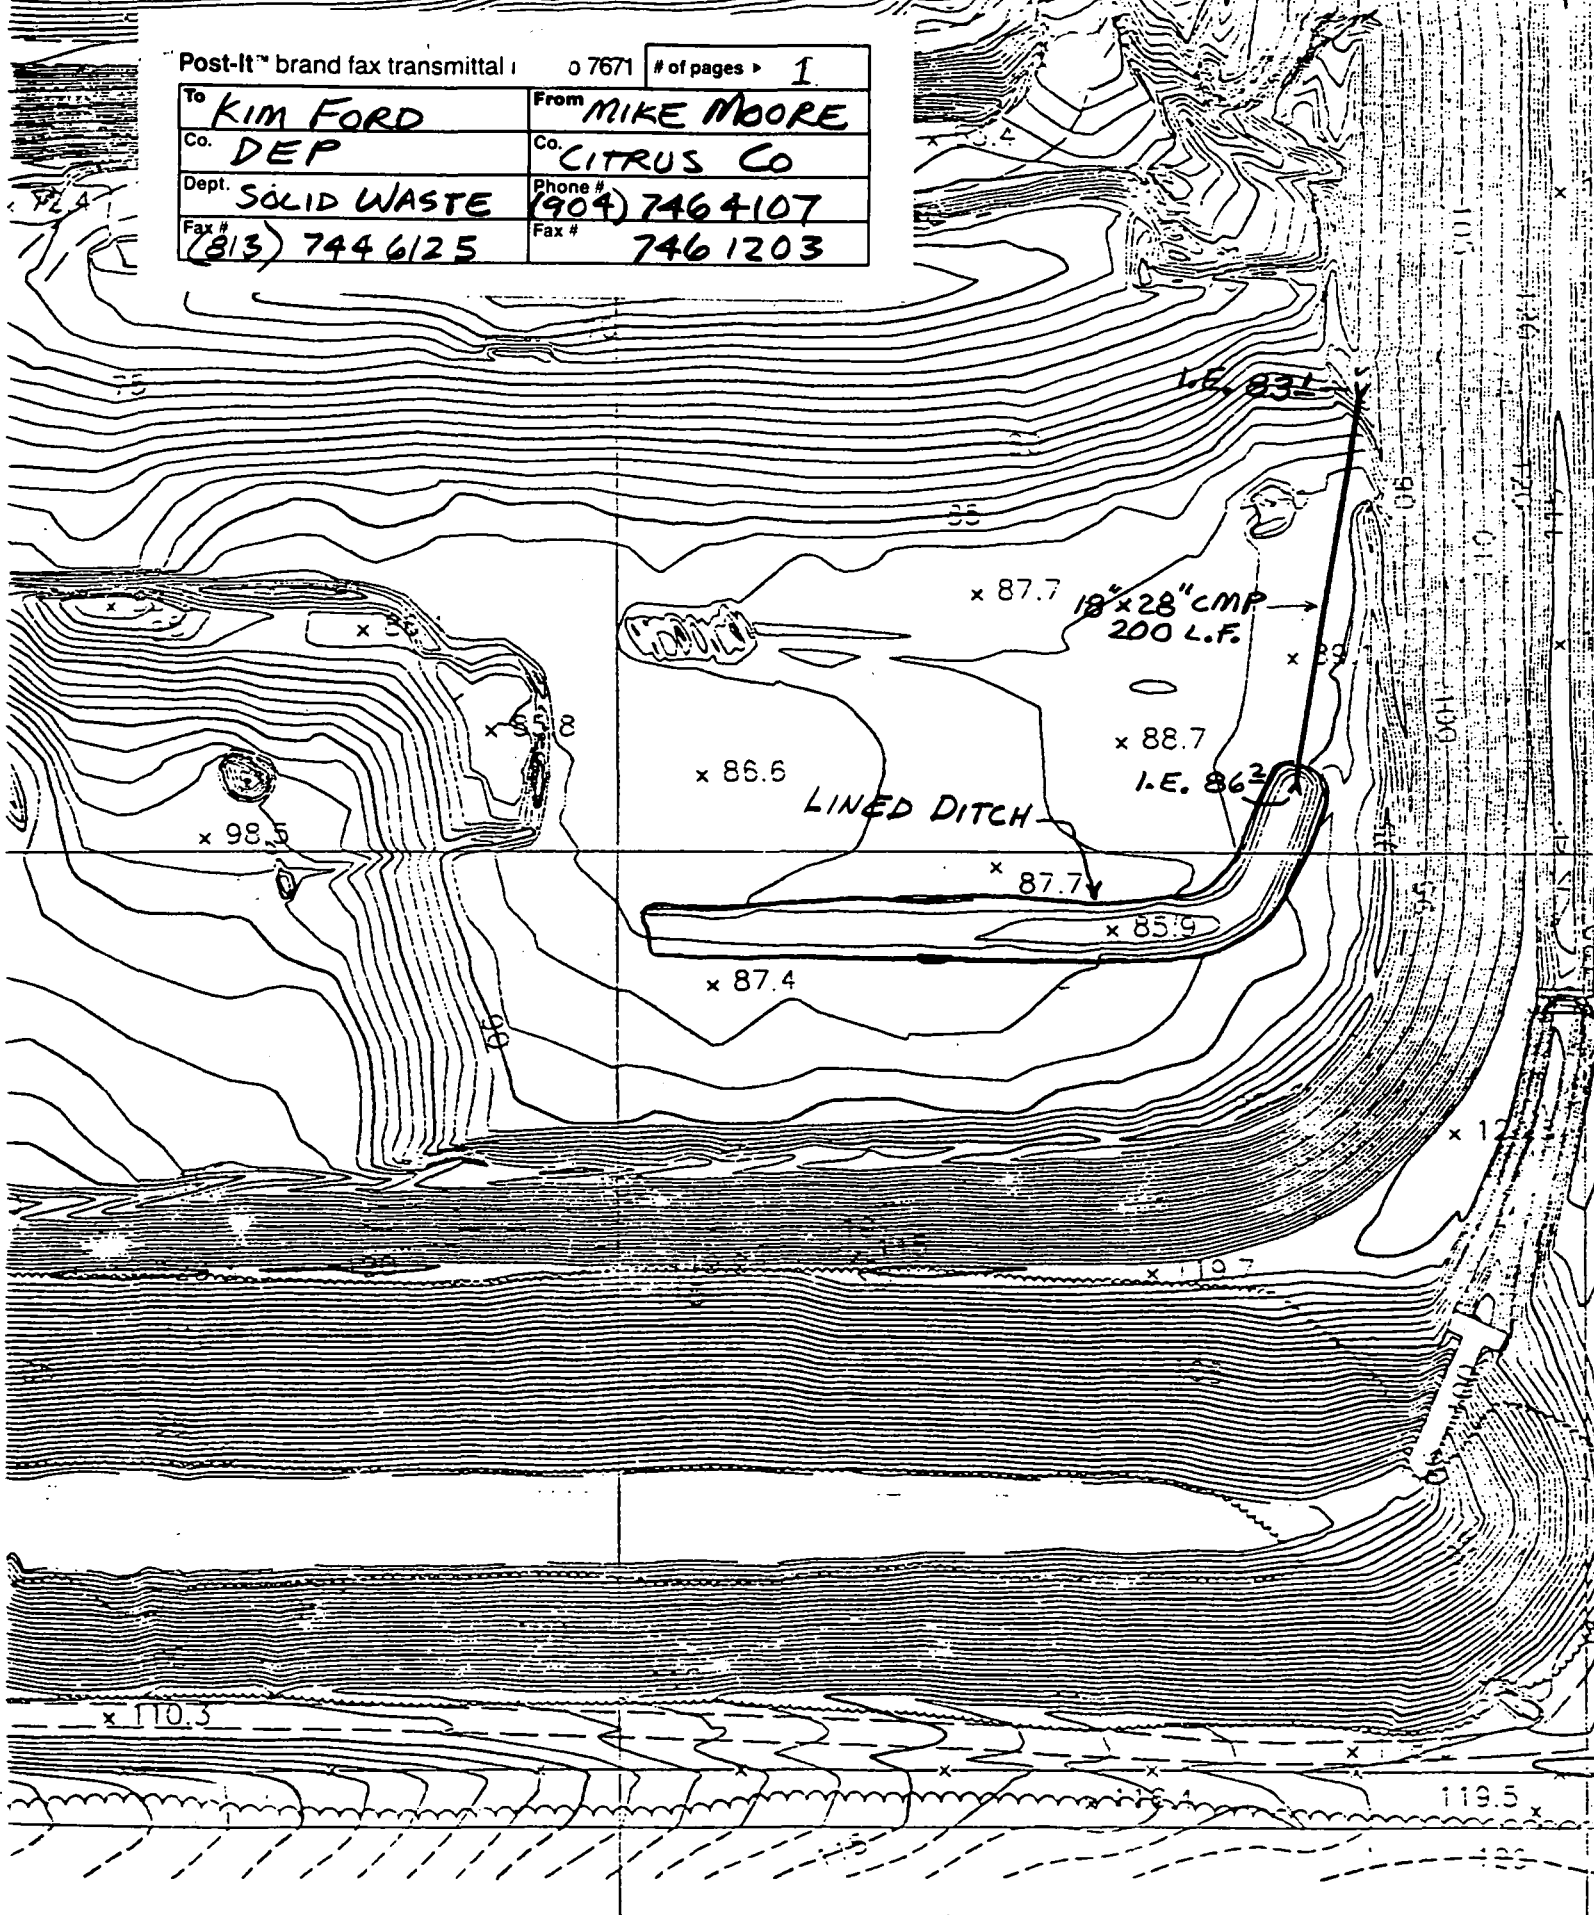 Post-It™ brand fax transmittal 7671 # of pages ▸ 1
To KIM FORD From MIKE MOORE
Co. DEP Co. CITRUS CO
Dept. SOLID WASTE Phone # (904) 746 4107
Fax # (813) 744 6125 Fax # 746 1203
105
75
I.E. 83¹
90
120
110
× 87.7
18"×28" CMP
200 L.F.
100
× 88.7
× 86.6
I.E. 86²
LINED DITCH
× 98.5
87.7
95
× 85.9
× 87.4
90
× 119.7
× 110.3
119.5 ×
115
120